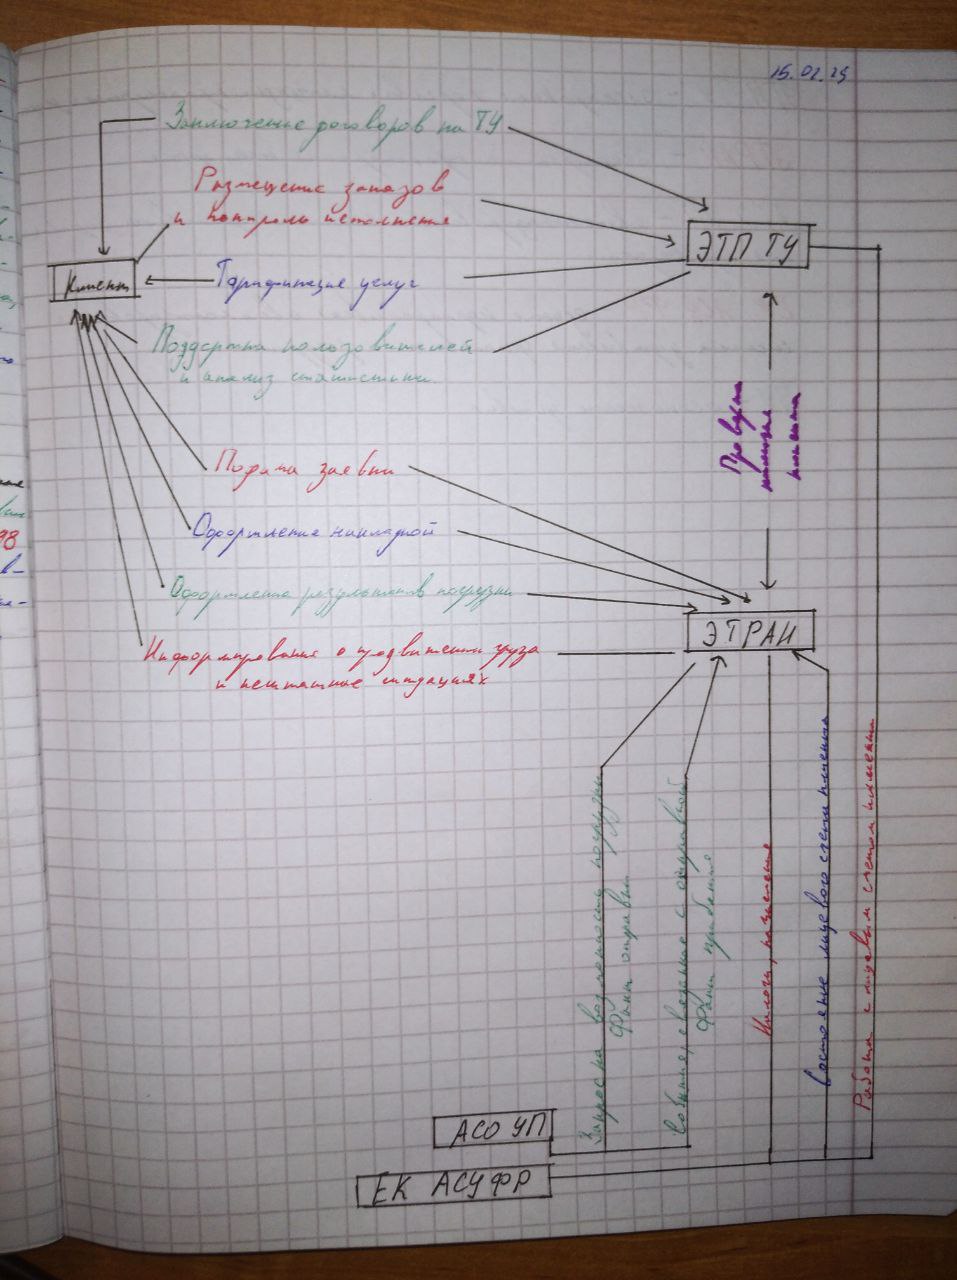 15.02.25
Заключение договоров на ТУ
Размещение заказов
и контроль исполнения
ЭТП ТУ
Клиент
Тарификация услуг
Поддержка пользователей
и анализ статистики.
Подача заявки
Оформление накладной
Оформление результатов погрузки
ЭТРАН
Информирование о продвижении груза
и нештатных ситуациях
Запрос на возможность погрузки
Факт отправки
Факт прибытия
Состояние лицевого счета клиента
Работа с лицевым счетом клиента
АСОУП
ЕК АСУФР